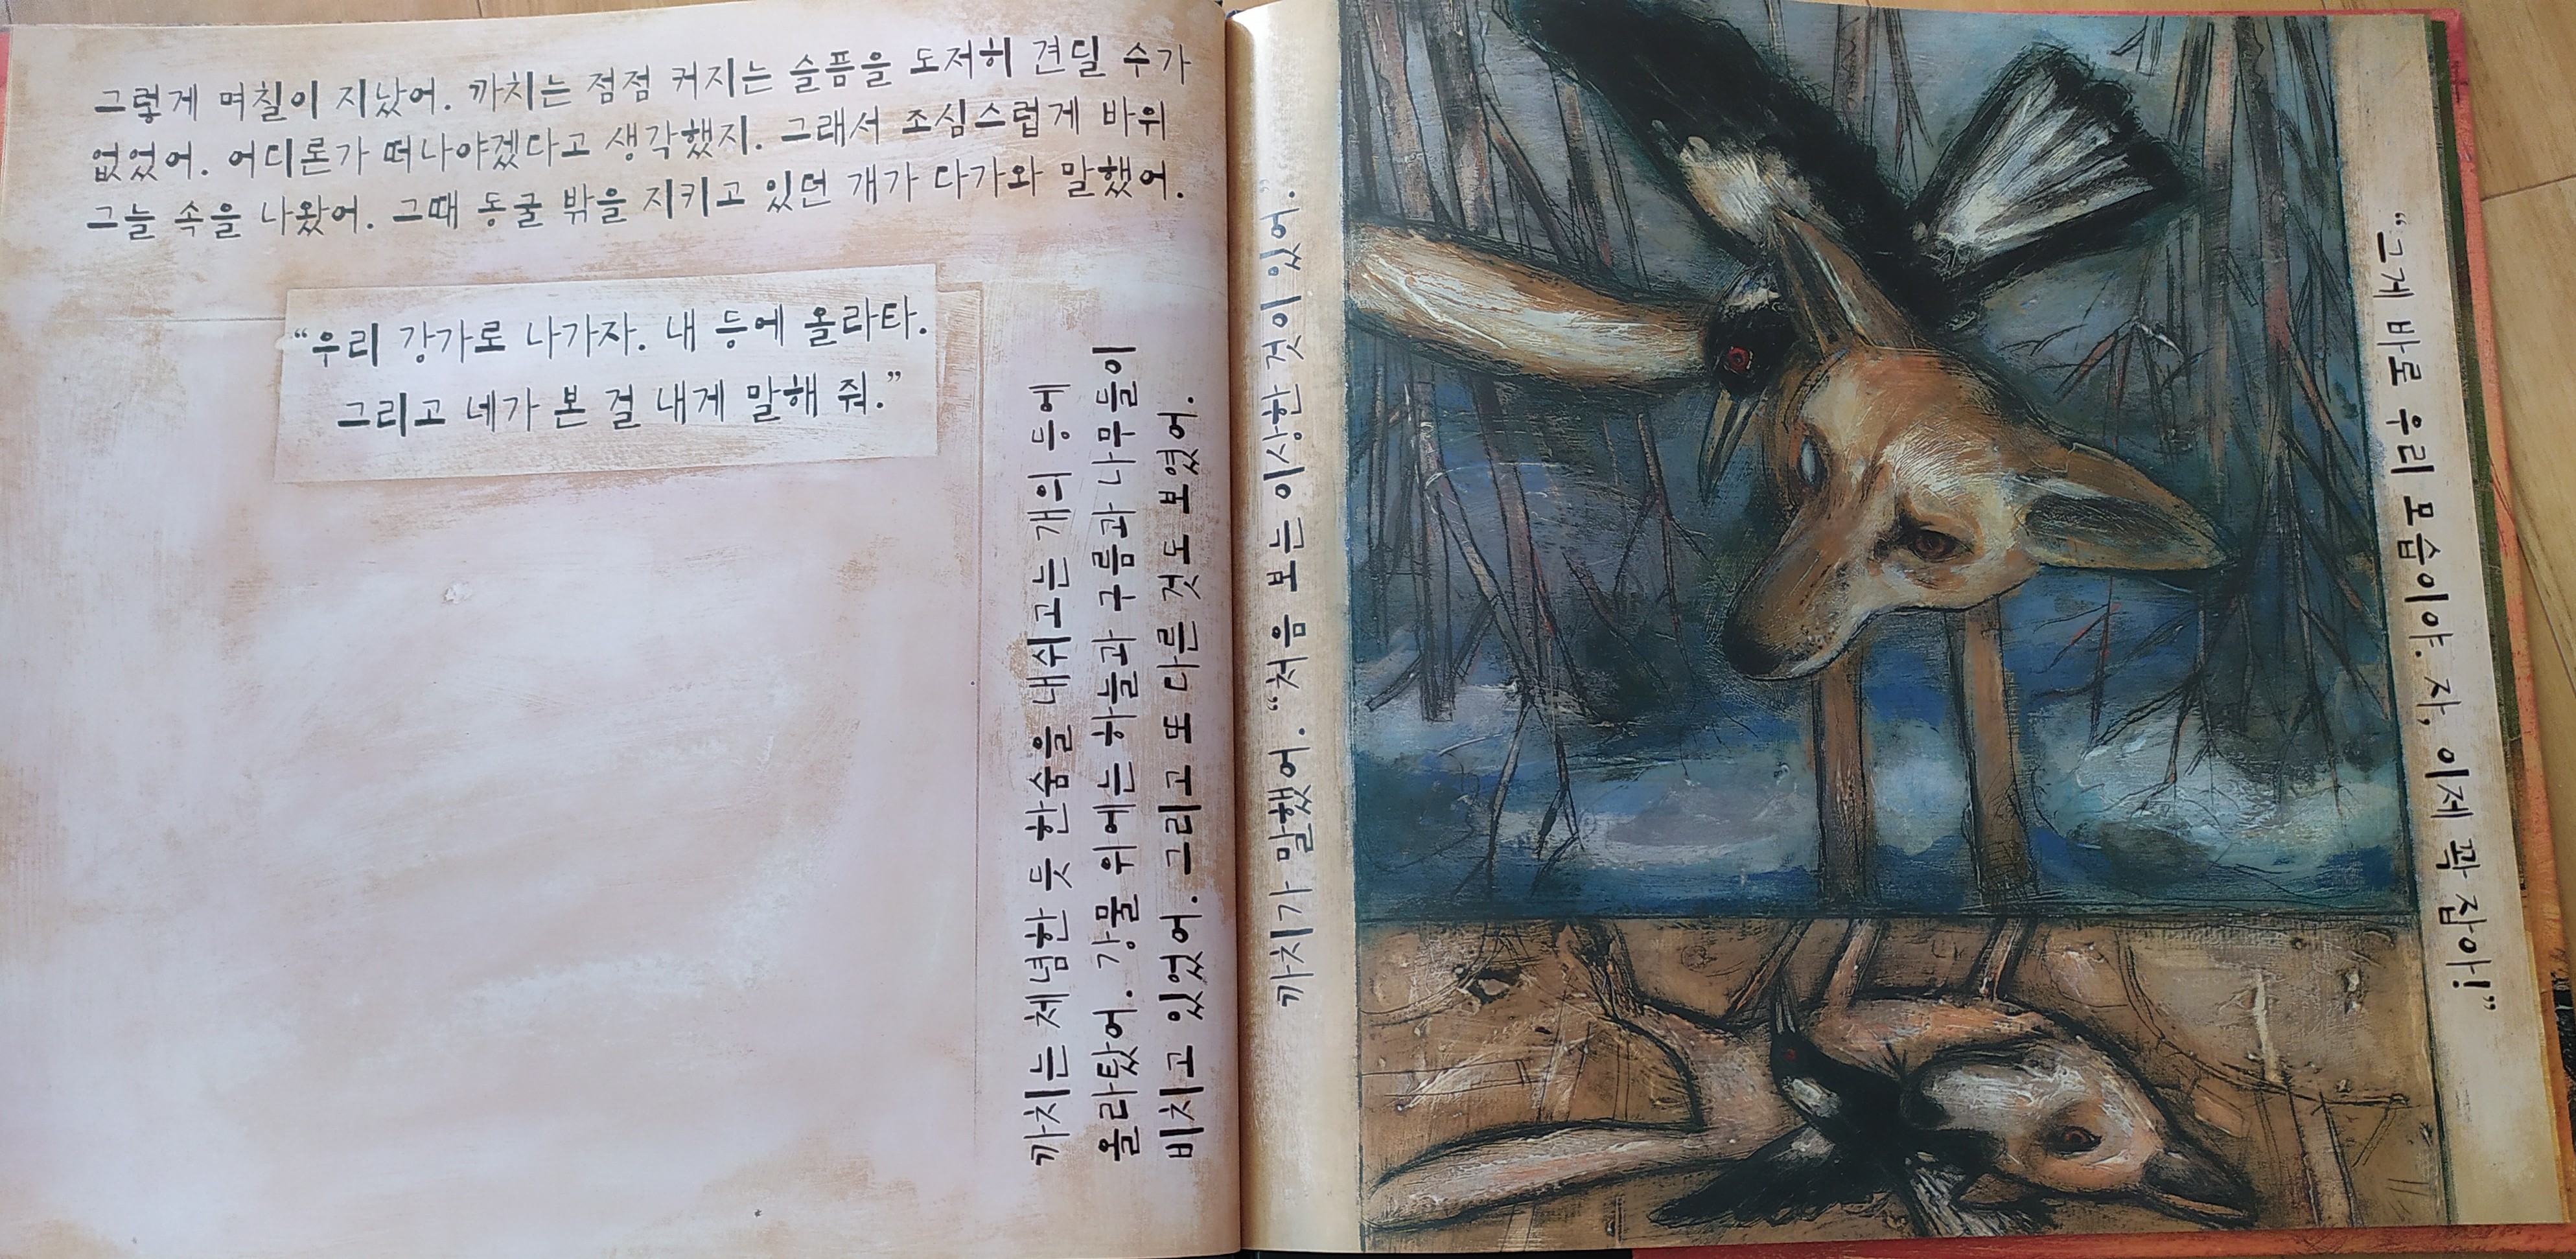 그렇게 며칠이 지났어. 까치는 점점 커지는 슬픔을 도저히 견딜 수가
없었어. 어디론가 떠나야겠다고 생각했지. 그래서 조심스럽게 바위
그늘 속을 나왔어. 그때 동굴 밖을 지키고 있던 개가 다가와 말했어.
“우리 강가로 나가자. 내 등에 올라타.
그리고 네가 본 걸 내게 말해 줘.”
까치는 체념한 듯 한숨을 내쉬고는 개의 등에
올라탔어. 강물 위에는 하늘과 구름과 나무들이
비치고 있었어. 그리고 또 다른 것도 보였어.
까치가 말했어. “처음 보는 이상한 것이 있어.”
“그게 바로 우리 모습이야. 자, 이제 꽉 잡아!”